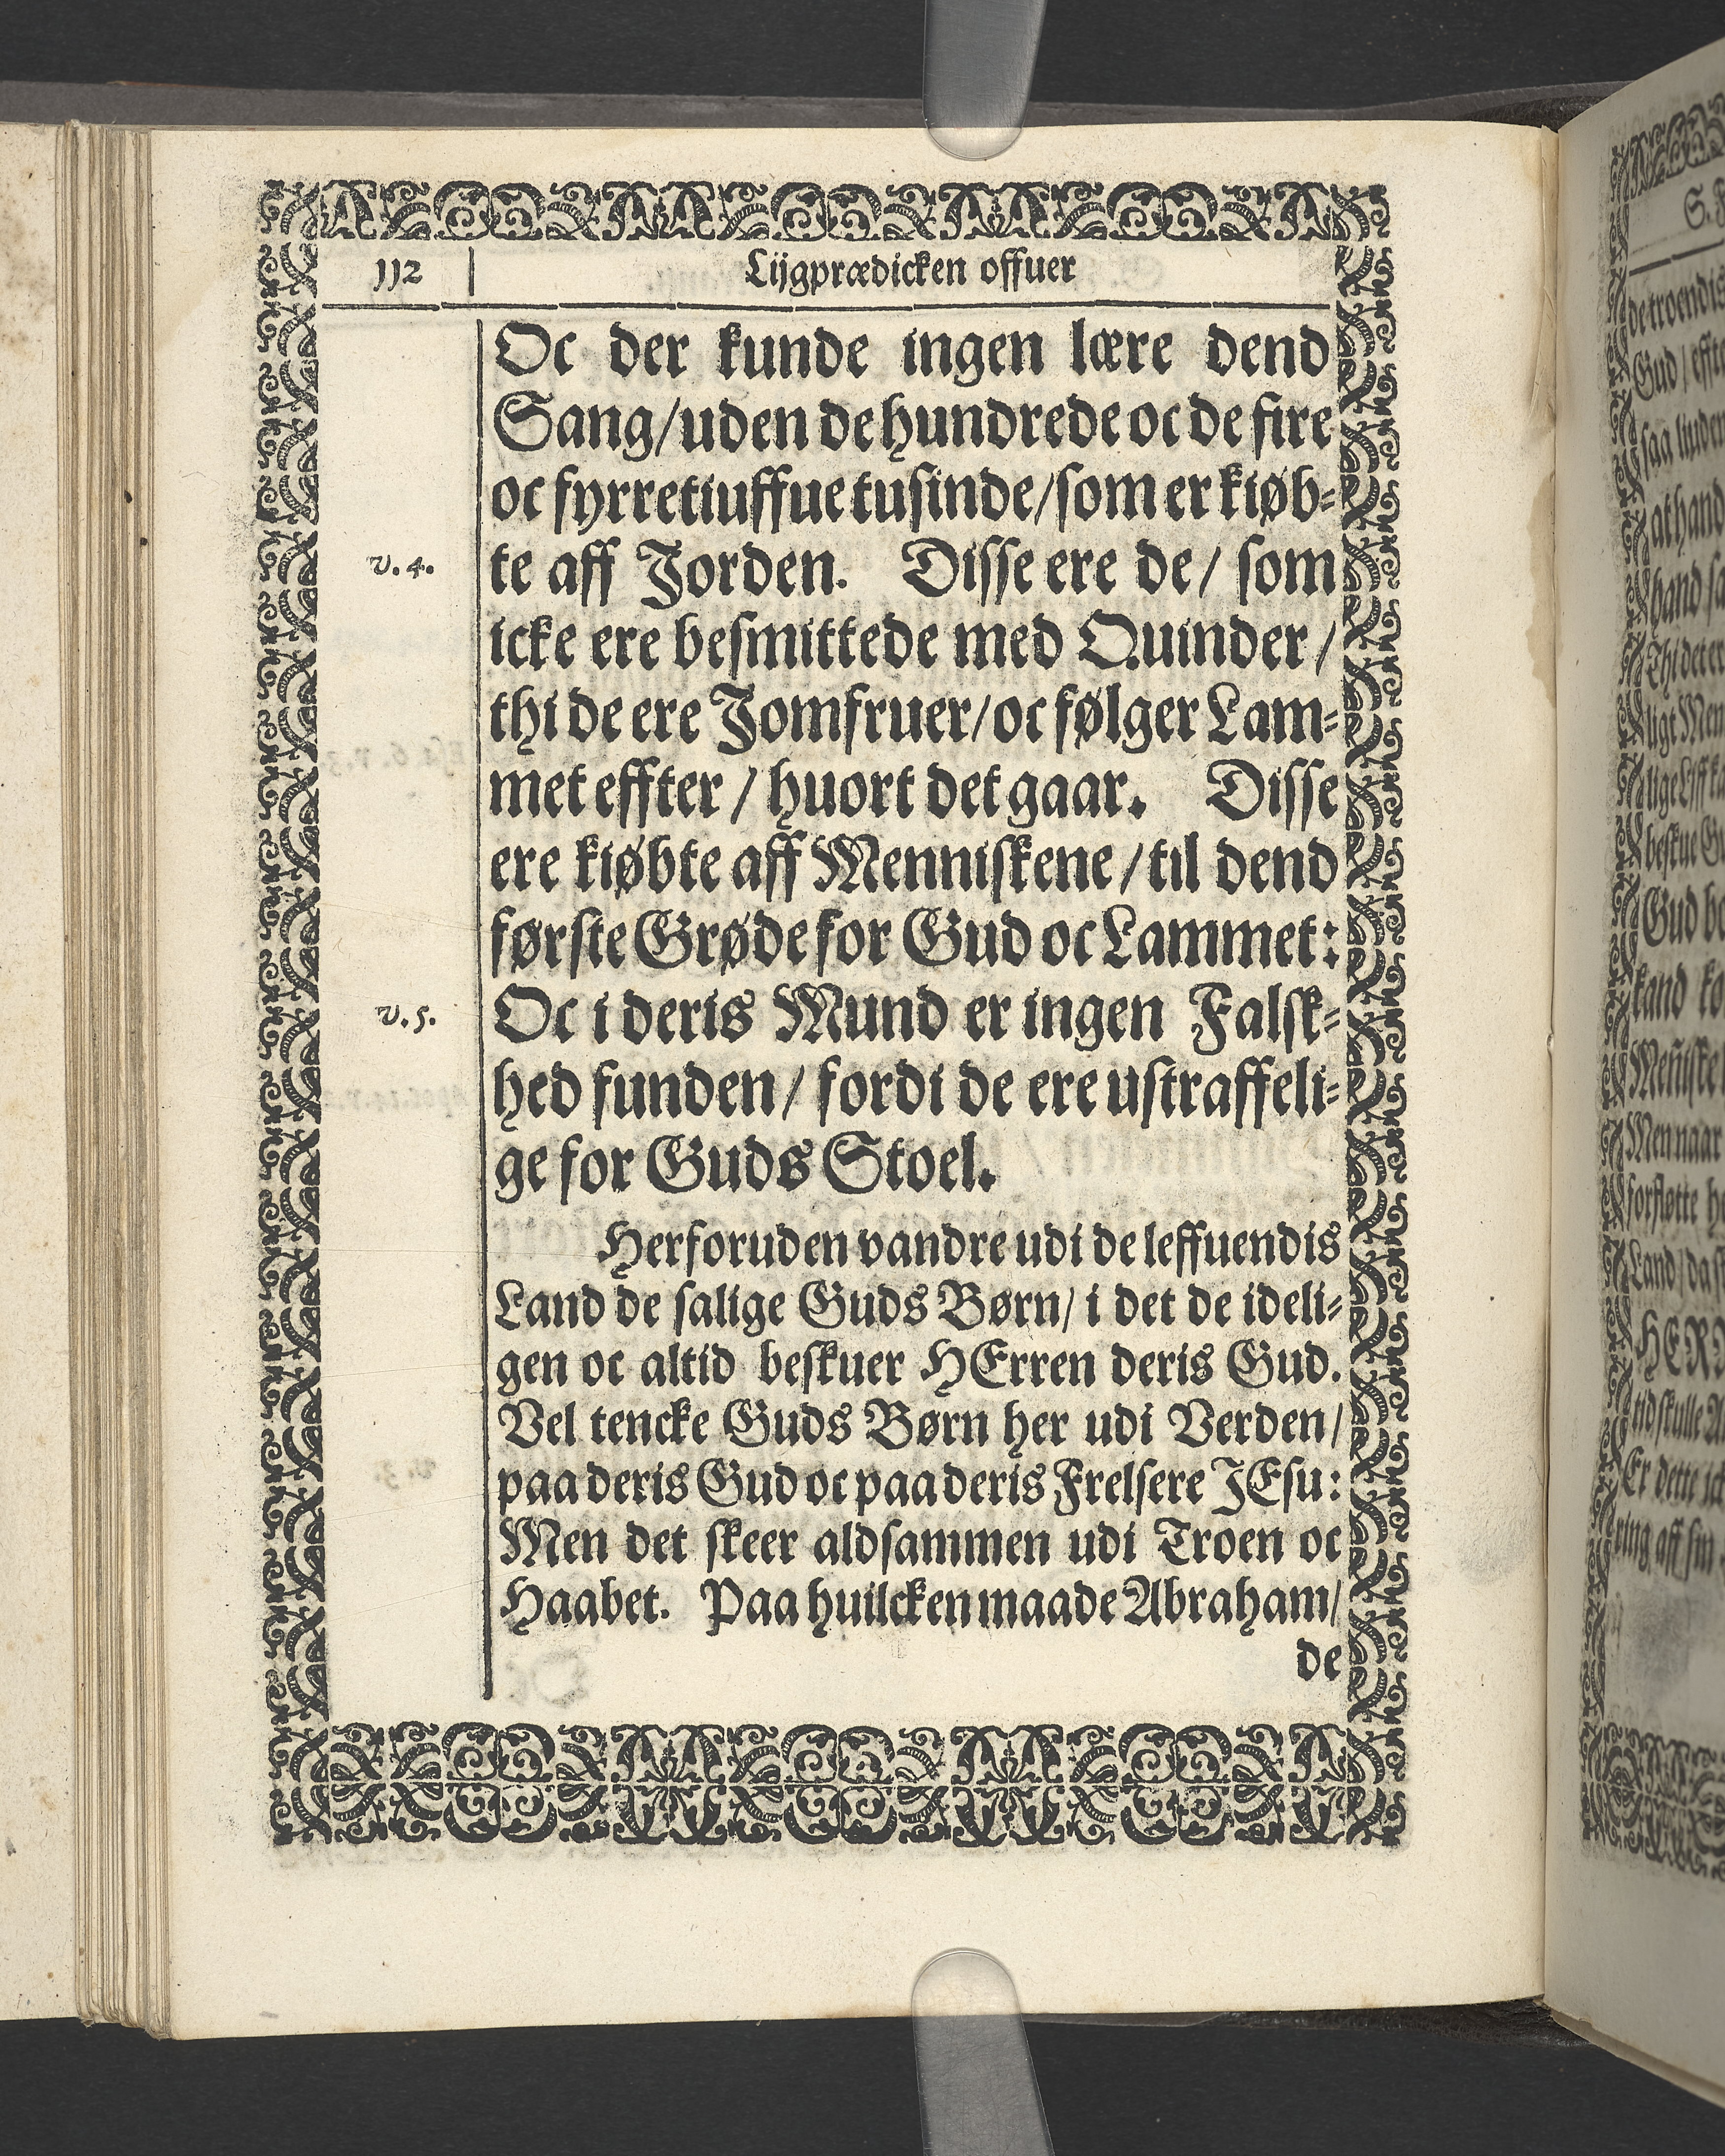 112
Lijgprædicken offuer
Oc der kunde ingen lære dend
Sang/uden de hundrede oc de fire
oc fyrretiuffue tusinde/som er kiøb-
v. 4.
te aff Jorden. Disse ere de/ som
icke ere besmittede med Quinder/
thi de ere Jomfruer/oc følger Lam-
met effter / huort det gaar. Disse
ere kiøbte aff Menniskene/til dend
første Grøde for Gud oc Lammet:
v. 5.
Oc i deris Mund er ingen Falsk-
hed funden/ fordi de ere ustraffeli-
ge for Guds Stoel.
Herforuden vandre udi de leffuendis
Land de salige Guds Børn/ i det de ideli-
gen oc altid beskuer HErren deris Gud.
Vel tencke Guds Børn her udi Verden/
paa deris Gud oc paa deris Frelsere JEsu:
Men det skeer aldsammen udi Troen oc
Haabet. Paa huilcken maade Abraham/
de